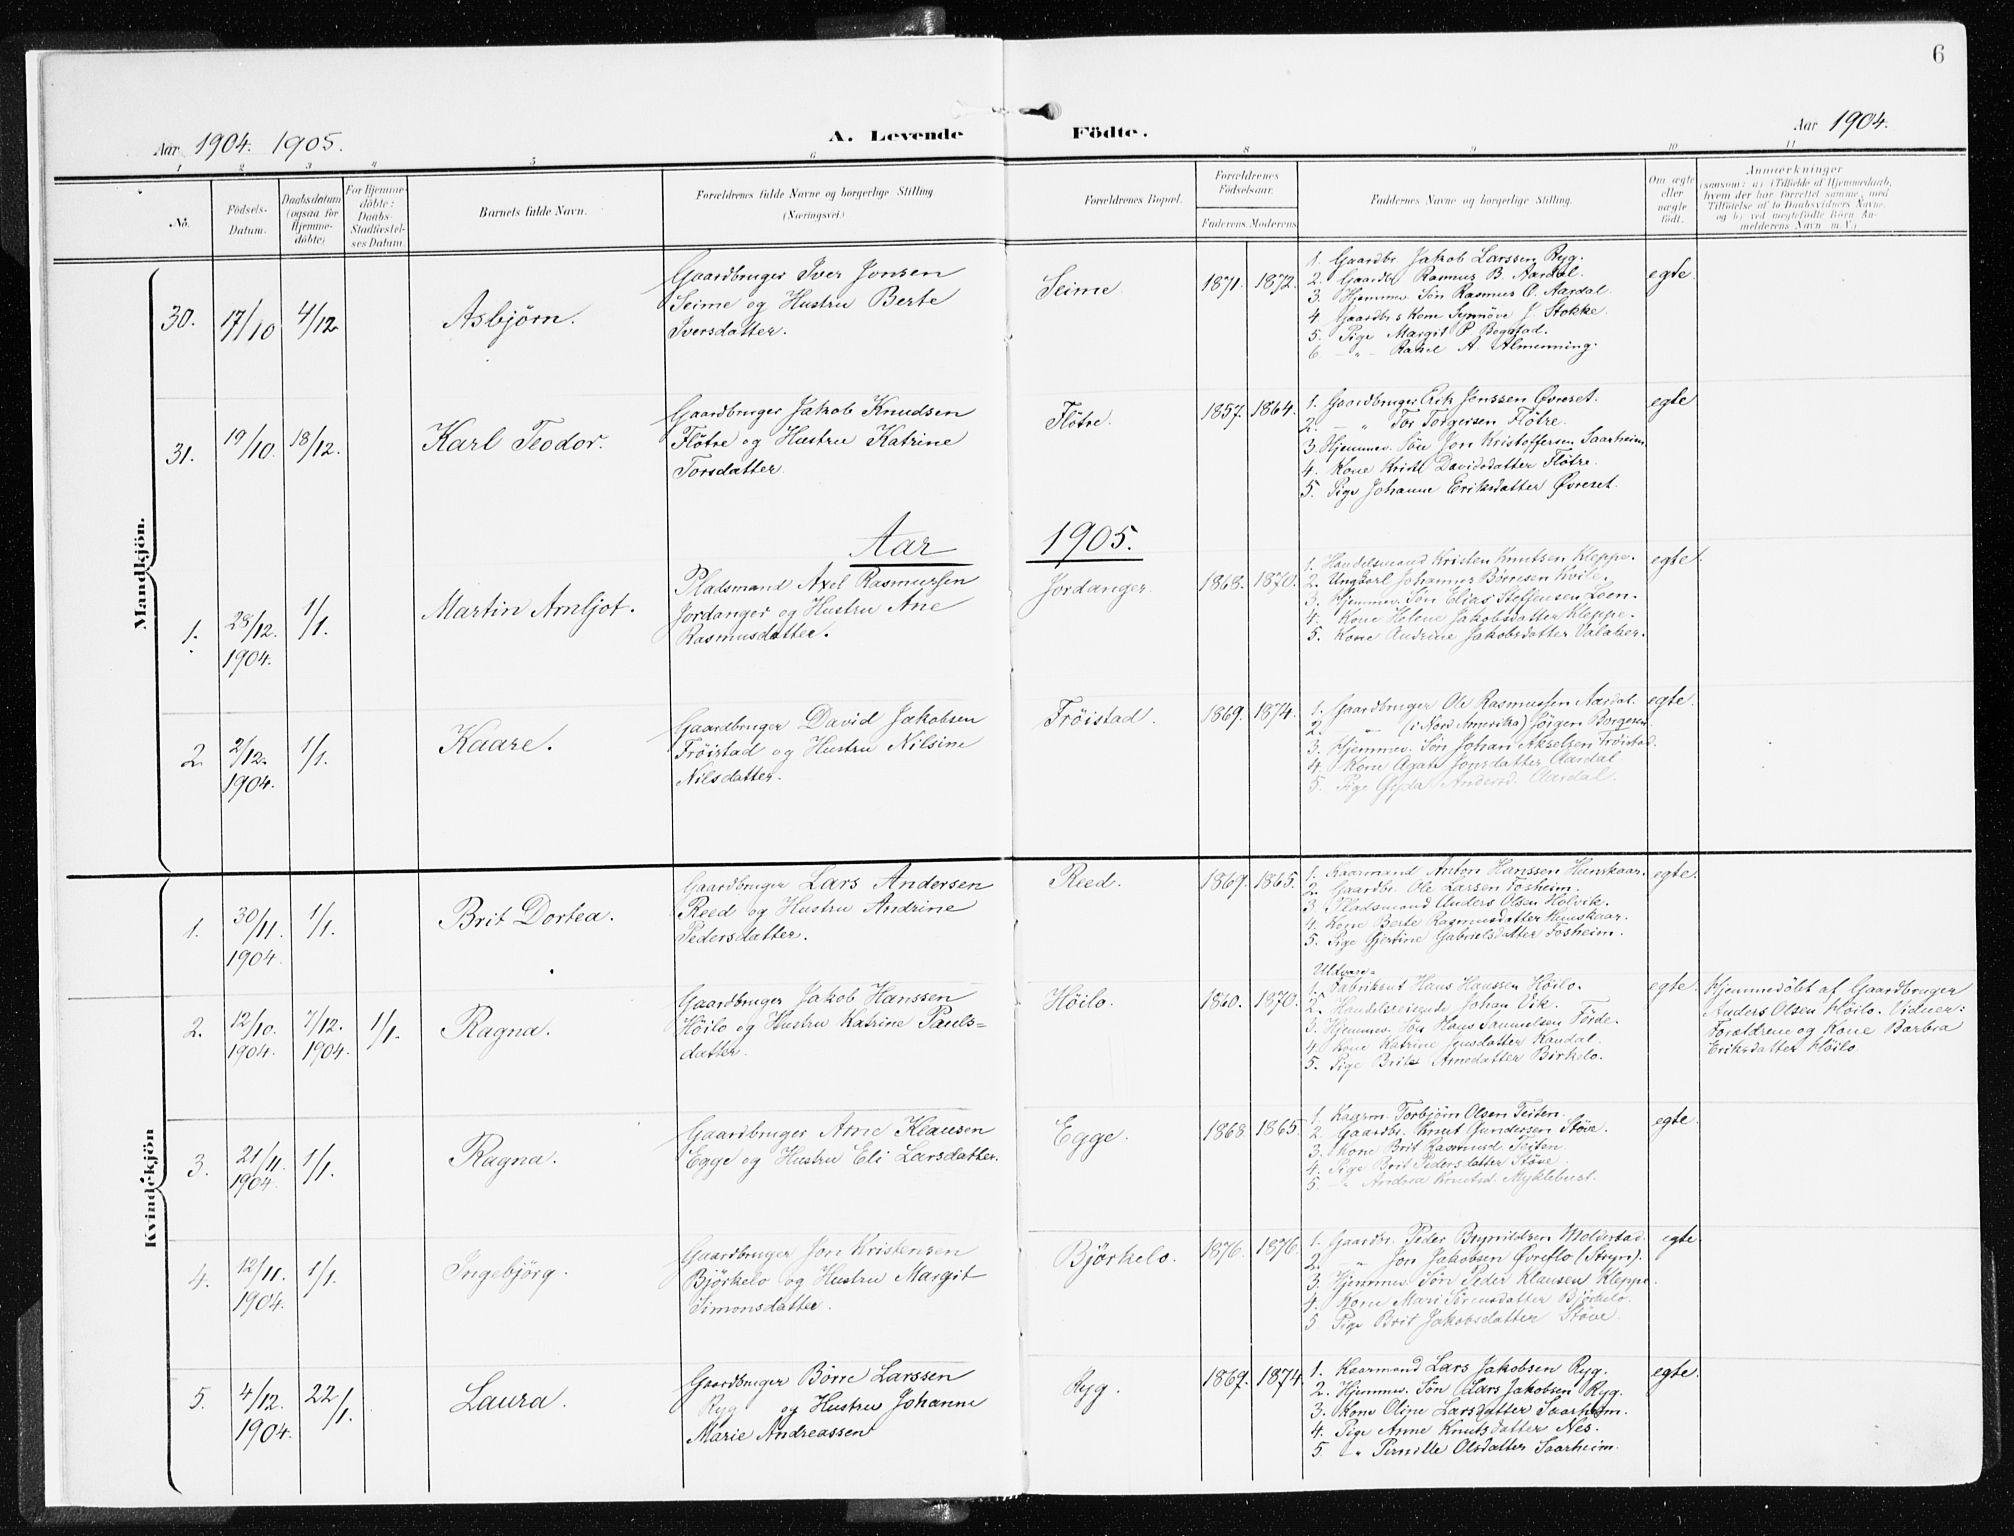 6
Aar 1904. 1905.
A. Levende Födte.
Aar 1904.
1 2 3 4 5 6 8 9 10 11
No.
Födsels-Datum.
Daabsdatum (ogsaa for Hjemme-döbte)
For Hjemme-döbte: Daabs-Stadfæstel-ses Datum.
Barnets fulde Navn.
Forældrenes fulde Navne og borgerlige Stilling (Næringsvei.)
Forældrenes Bopæl.
Forældrenes Födselsaar.
Faderens. Moderens.
Faddernes Navne og borgerlige Stilling.
Om ægte eller uægte födt.
Anmerkninger
(saasom: a) i Tilfælde af Hjemmedaab, hvem der har forrettet samme, med Tilföielse af to Daabsvidners Navne, og b) ved uægtefödte Börn An-melderens Navn m. V.)
Mandkjön.
30. 17/10 4/12 Asbjørn.
Gaardbruger Iver Jonsen
Seime og Hustru Berte
Iversdatter.
Seime. 1871. 1872.
1. Gaardbr. Jakob Larssen Ryg.
2. Gaardbr Rasmus B. Aardal.
3. Hjemmev. Søn Rasmus O. Aardal.
4 Gaardbrs Kone Synnöve J. Stokke.
5. Pige Margit P. Bogstad.
6 — " — Rakel A. Almenning.
egte
31. 19/10 18/12. Karl Teodor.
Gaardbruger Jakob Knudsen
Fløtre og Hustru Katrine
Torsdatter.
Fløtre. 1857. 1864.
1. Gaardbruger Erik Jenssen Øvreset.
2. — " Tor Torgersen Fløtre.
3. Hjemmev. Søn Jon Kristoffersen Saarheim
4. Kone Kristi Davidsdatter Fløtre.
5. Pige Johanne Eriksdatter Øvreset.
egte
Aar 1905.
1. 28/12. 1904. 1/1. Martin Arnljot.
Pladsmand Axel Rasmussen
Jordanger og Hustru Ane
Rasmusdatter.
Jordanger. 1868. 1870.
1. Handelsmand Kristen Knutsen Kleppe.
2. Ungkarl Johannes Børresen Kvile.
3. Hjemmev. Søn Elias Steffensen Loen.
4. Kone Helene Jakobsdatter Kleppe.
5. Kone Andrine Jakobsdatter Valaker.
egte.
2. 2/12. 1904. 1/1. Kaare.
Gaardbruger David Jakobsen
Frøistad og Hustru Nilsine
Nilsdatter.
Frøistad. 1869. 1874.
1. Gaardbruger Ole Rasmussen Aardal.
2 — " (i Nord Amerika) Jörgen Borgesen
3. Hjemmev. Søn Johan Akselsen Frøistad.
4. Kone Agate Jonsdatter Aardal
5. Pige Gjda Andersd. Aardal.
egte.
Kvindekjön
1. 30/11. 1904. 1/1. Brit Dortea.
Gaardbruger Lars Andersen
Reed og Hustru Andrine
Pedersdatter.
Reed. 1869. 1865.
1. Kaarmand Anton Hanssen Hunskaar.
2. Gaardbr. Ole Larsen Fosheim.
3. Pladsmand Anders Olsen Holvik.
4. Kone Berte Rasmusdatter Hunskaar.
5. Pige Gjertine Gabrielsdatter Fosheim.
egte.
2. 12/10. 1904. 7/12. 1904. 1/1. Ragna.
Gaardbruger Jakob Hanssen
Höilo og Hustru Katrine Pauls=
datter.
Höilo. 1860. 1870.
Uldvare=
1. Fabrikent Hans Hanssen Höilo.
2. Handelsreisende Johan Vik.
3. Hjemmev. Søn Hans Samuelsen Förde.
4. Kone Katrine Jensdatter Kandal.
5. Pige Brite Arnedatter Birkelo.
egte.
Hjemmedöbt af Gaardbruger
Anders Olsen Höilo. Vidner:
Forældrene og Kone Barbra
Eriksdatter Höilo.
3. 21/11. 1904. 1/1. Ragna.
Gaardbruger Arne Klausen
Egge og Hustru Eli Larsdatter.
Egge. 1868. 1865.
1. Kaarm. Torbjörn Olsen Teiten.
2. Gaardbr. Knut Gundersen Støve.
3. Kone Brit Rasmusd Teiten.
4. Pige Brit Pedersdatter Støve
5. — " Andrea Knutsd. Myklebust.
egte.
4. 12/11. 1904. 1/1. Ingebjörg.
Gaardbruger Jon Kristensen
Bjørkelo og Hustru Margit
Simonsdatter.
Bjørkelo. 1876. 1876.
1. Gaardbr. Peder Brynildsen Moldestad.
2. " Jon Jakobsen Øvreflo (Stryn).
3. Hjemmev. Søn Peder Klausen Kleppe.
4. Kone Mari Sörensdatter Björkelo.
5. Pige Brit Jakobsdatter Støve.
egte
5. 4/12. 1904. 22/1. Laura.
Gaardbruger Børre Larssen
Ryg og Hustru Johanne
Marie Andreassen
Ryg. 1869. 1874.
1. Kaarmand Lars Jakobsen Ryg.
2. Hjemmev. Søn Lars Jakobsen Ryg.
3. Kone Oline Larsdatter Saarheim.
4. Pige Anne Knutsdatter Nes.
5 — " Pernille Olsdatter Saarheim.
egte.